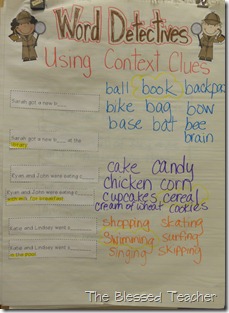 Word Detectives
Using Context Clues
ball book backpack
bike bag bow
base bat bee
brain
Sarah got a new b
Sarah got a new b at the
library
cake candy
chicken corn
cupcakes cereal
cream of wheat cookies
Ryan and John were eating c
Ryan and John were eating c
with milk for breakfast
shopping skating
swimming surfing
singing skipping
Katie and Lindsey went s
Katie and Lindsey went s
in the pool
The Blessed Teacher